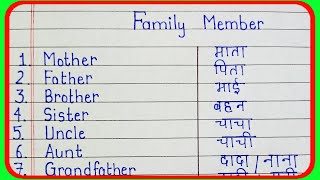 Family Member
1. Mother माता
2. Father पिता
3. Brother भाई
4. Sister बहन
5. Uncle चाचा
6. Aunt चाची
7. Grandfather दादा / नाना